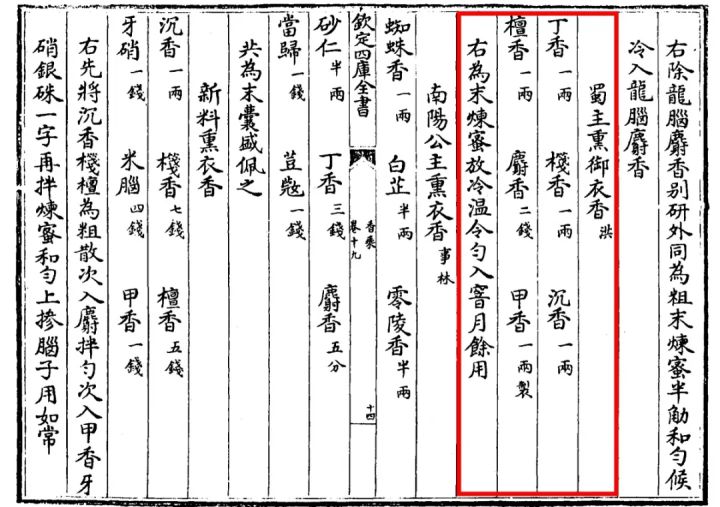 右除龍腦麝香别研外同為粗末煉蜜半觔和匀候
冷入龍腦麝香
蜀主熏御衣香 洪
丁香 一兩 棧香 一兩 沉香 一兩
檀香 一兩 麝香 二錢 甲香 一兩製
右為末煉蜜放冷温令匀入窨月餘用
南陽公主熏衣香 事林
蜘蛛香 一兩 白芷 半兩 零陵香 半兩
欽定四庫全書 香乘 卷十九 十四
砂仁 半兩 丁香 三錢 麝香 五分
當歸 一錢 荳蔲 一錢
共為末囊盛佩之
新料熏衣香
沉香 一兩 棧香 七錢 檀香 五錢
牙硝 一錢 米腦 四錢 甲香 一錢
右先將沉香棧檀為粗散次入麝拌匀次入甲香牙
硝銀硃一字再拌煉蜜和匀上摻腦子用如常